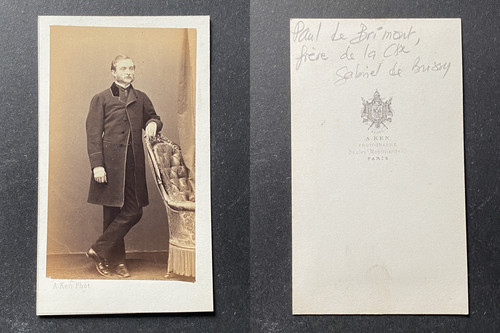 A. Ken Phot.
Paul de Brimont,
frère de la Ctsse
Gabriel de Bussy
A. KEN
PHOTOGRAPHE
PARIS